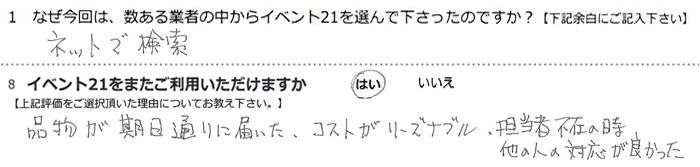 1 なぜ今回は、数ある業者の中からイベント21を選んで下さったのですか？【下記余白にご記入下さい】
ネットで検索
8 イベント21をまたご利用いただけますか はい いいえ
【上記評価をご選択頂いた理由についてお教え下さい。】
品物が期日通りに届いた、コストがリーズナブル、担当者不在の時、
他の人の対応が良かった